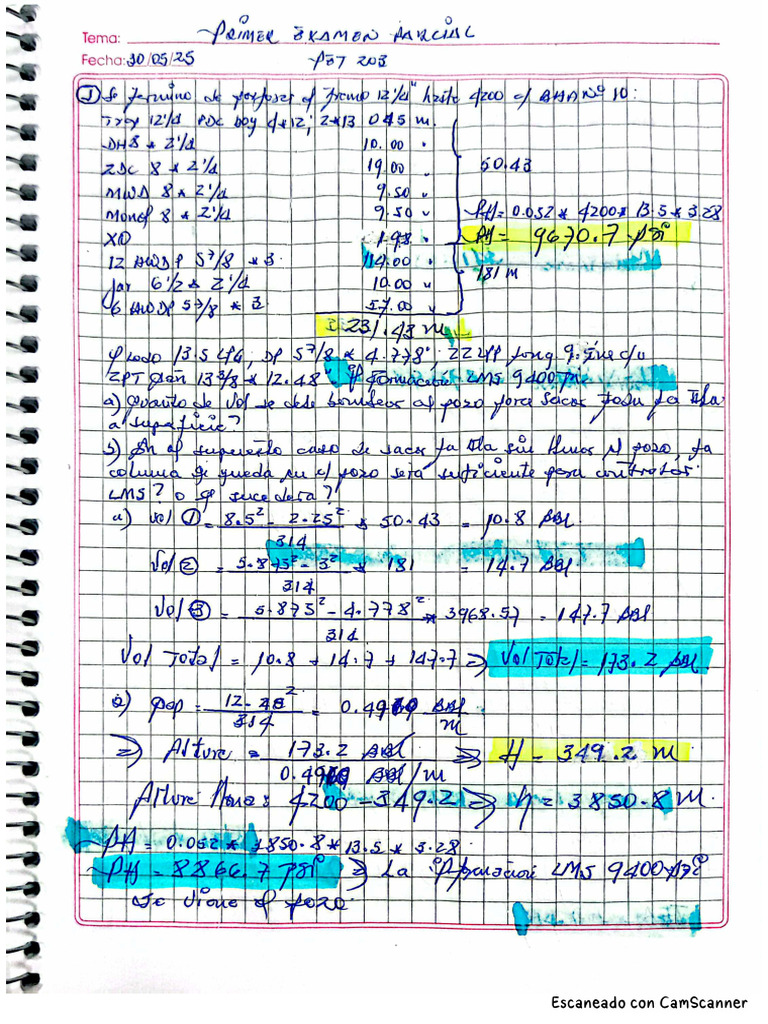 Tema: PRIMER EXAMEN PARCIAL
Fecha: 30/05/25 PET 203
① Se termino de perforar el tramo 12 1/4" hasta 4200 c/ BHA Nº 10:
12 1/4 PDC 4*12, 2*13 0.45 m.
DH 8 * 2 1/4 10.00 "
2DC 8 * 2 1/4 19.00 "
50.43
MWD 8 * 2 1/4 9.50 "
Monel 8 * 2 1/4 9.50 "
PH = 0.052 * 4200 * 13.5 * 3.28
XO 1.98 "
PH = 9670.7 PSI
12 HWDP 5 7/8 * 3 114.00 "
Jar 6 1/2 * 2 1/4 10.00 "
181 m
6 HWDP 5 7/8 * 3 57.00 "
231.43 m
ρ Lodo 13.5 LPG, DP 5 7/8 * 4.778" 22 LPP Long 9.5 c/u
ZPT 13 3/8 * 12.48" Formación LMS 9400 PSI
a) Cuanto de Vol se debe bombear al pozo para sacar toda la Hta
a superficie?
b) En el supuesto caso de sacar la Hta sin llenar el pozo, la
columna q queda en el pozo será suficiente para controlar
LMS? o q sucedera?
a) Vol ① = 8.5² - 2.25² / 314 * 50.43 = 10.8 BBL
Vol ② = 5.875² - 3² / 314 * 181 = 14.7 BBL
Vol ③ = 5.875² - 4.778² / 314 * 3968.57 = 147.7 BBL
Vol Total = 10.8 + 14.7 + 147.7 ⇒ Vol Total = 173.2 BBL
b) Cap = 12.48² / 314 = 0.4960 BBL/m
⇒ Altura = 173.2 BBL / 0.4960 BBL/m ⇒ H = 349.2 m
Altura 4200 - 349.2 ⇒ h = 3850.8 m.
PH = 0.052 * 3850.8 * 13.5 * 3.28
PH = 8866.7 PSI ⇒ La formación LMS 9400 PSI
Se viene el pozo.
Escaneado con CamScanner